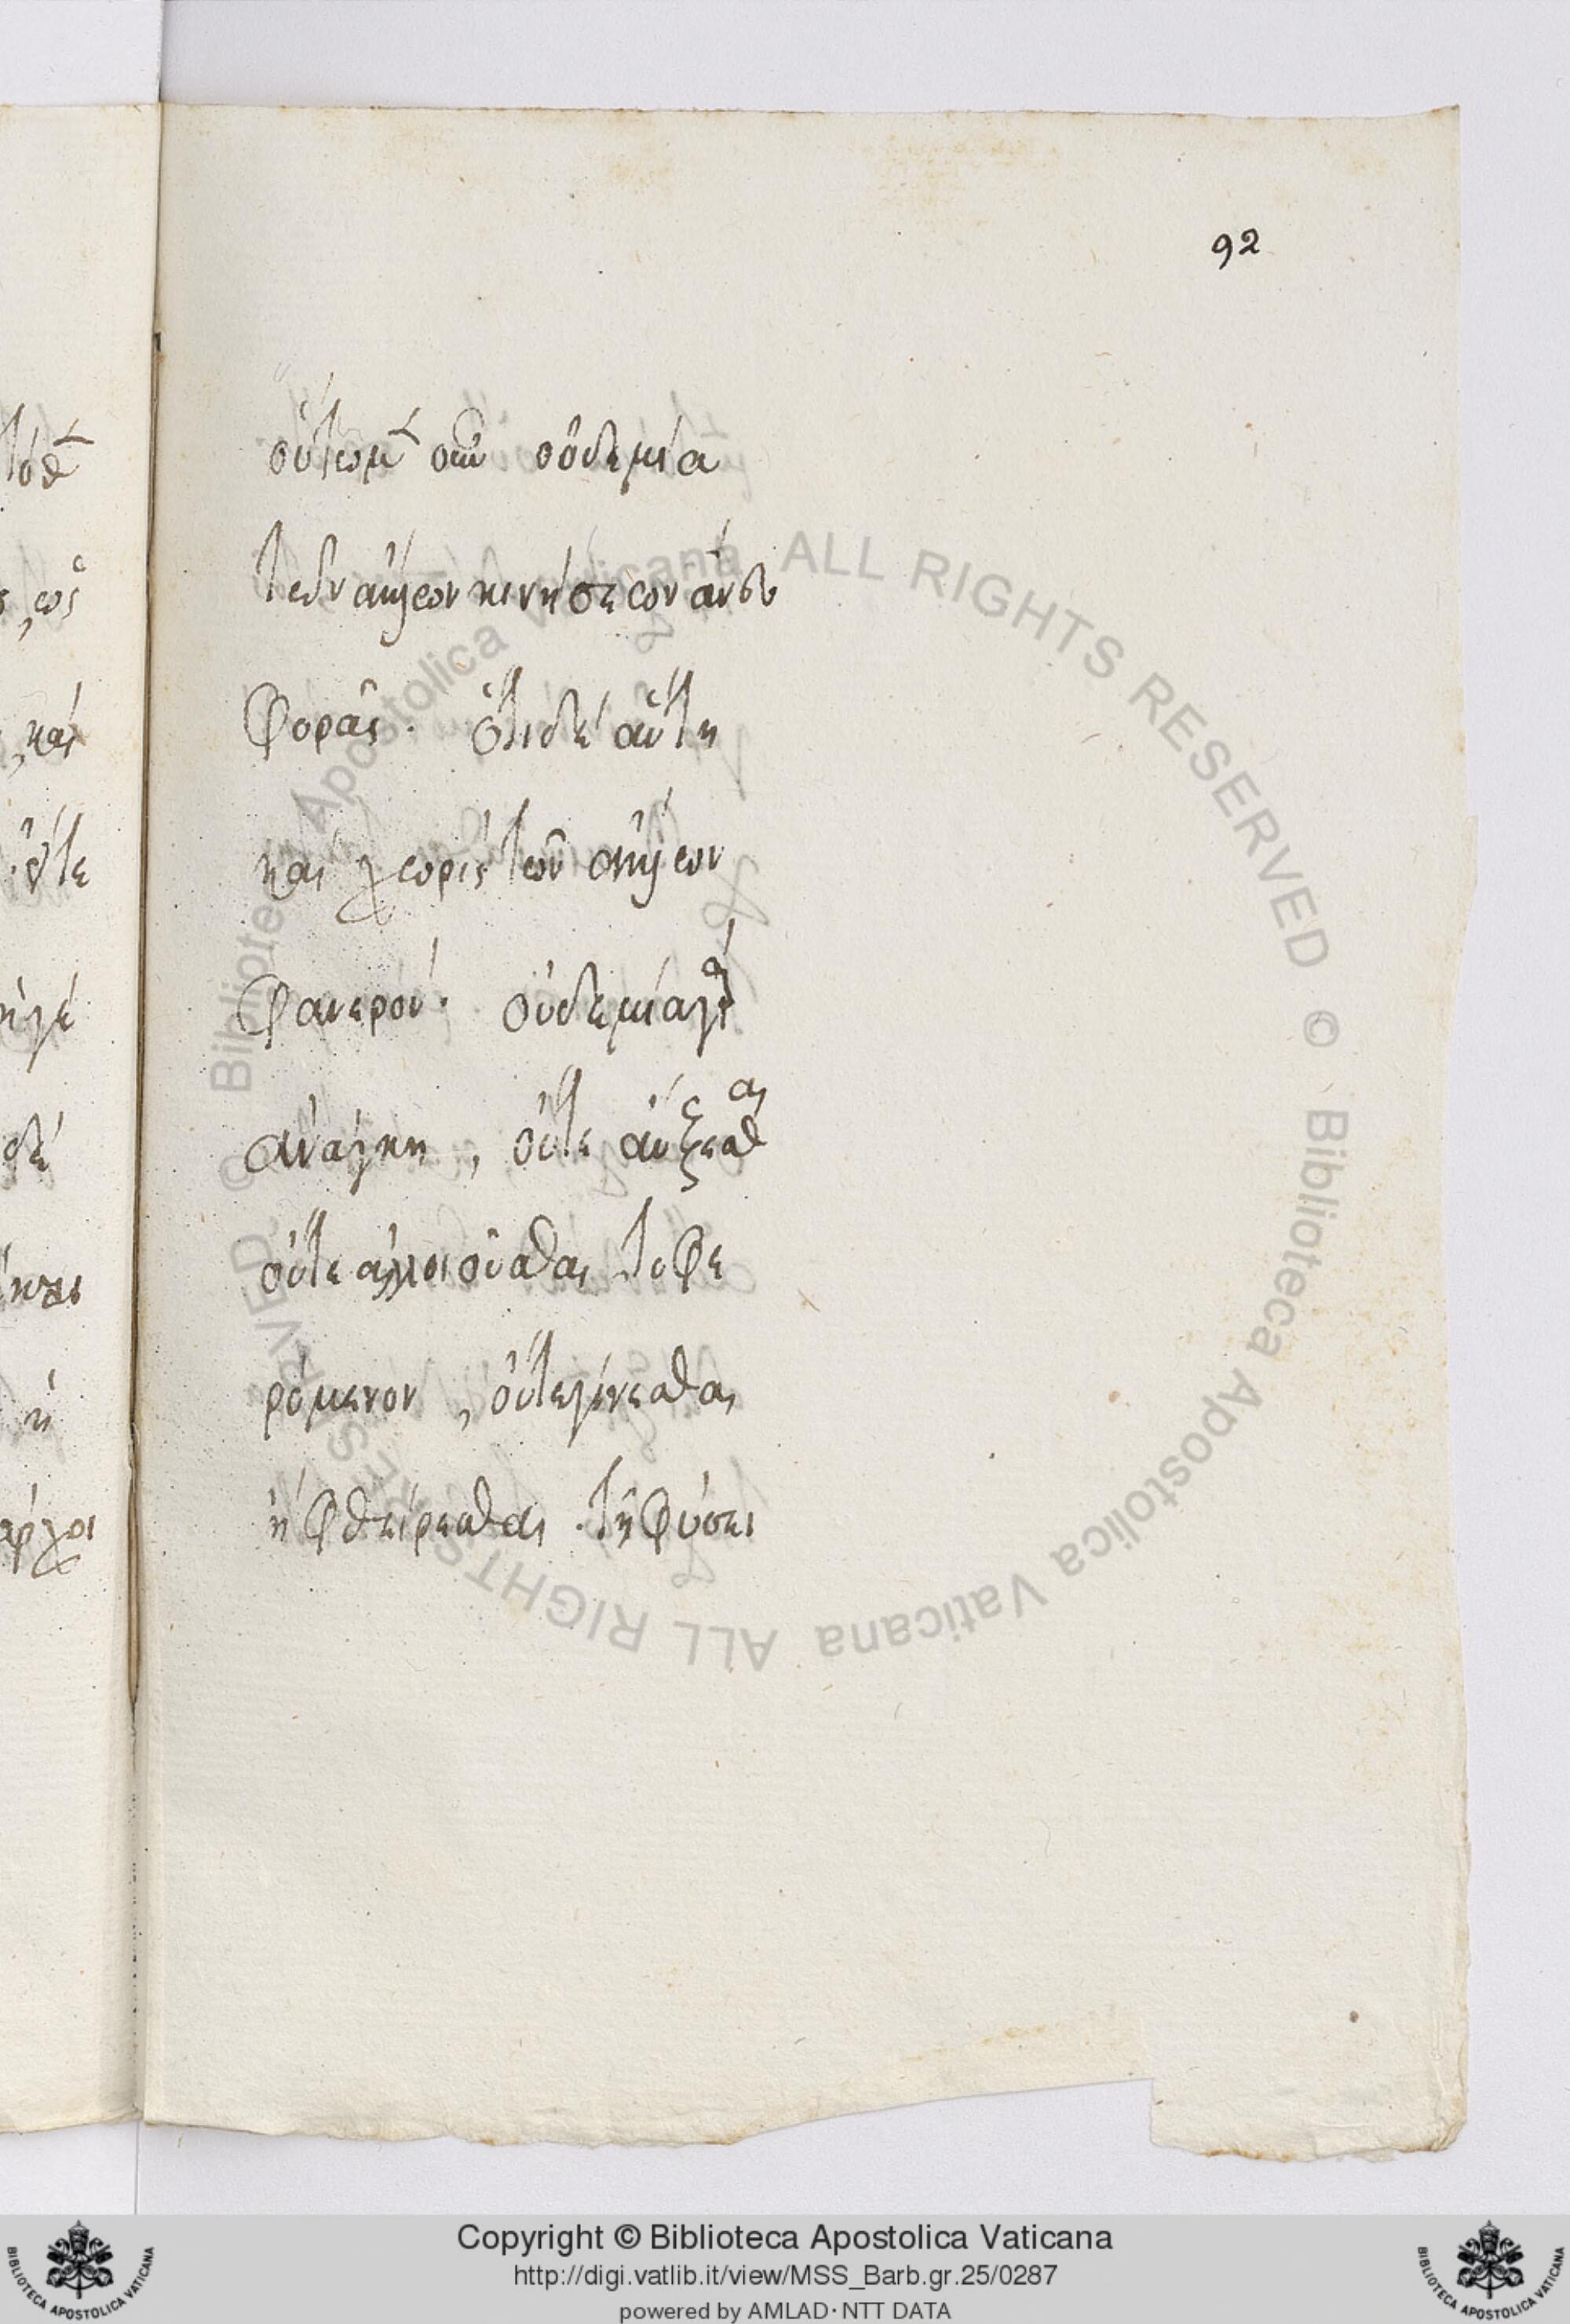 92
οὕτω μὲν οὖν οὐδεμία
τῶν ἄλλων κινήσεων ἄνευ
φορᾶς. ὅτι δὲ αὕτη
καὶ χωρὶς τῶν ἄλλων
φανερόν. οὐδεμία γὰρ
ἀνάγκη, οὔτε αὔξεσθαι
οὔτε ἀλλοιοῦσθαι τὸ φε
ρόμενον, οὔτε γίνεσθαι
ἢ φθείρεσθαι. τῇ φύσει
© Biblioteca Apostolica Vaticana ALL RIGHTS RESERVED
© Biblioteca Apostolica Vaticana ALL RIGHTS RESERVED
Copyright © Biblioteca Apostolica Vaticana
http://digi.vatlib.it/view/MSS_Barb.gr.25/0287
powered by AMLAD·NTT DATA
BIBLIOTECA APOSTOLICA VATICANA
BIBLIOTECA APOSTOLICA VATICANA